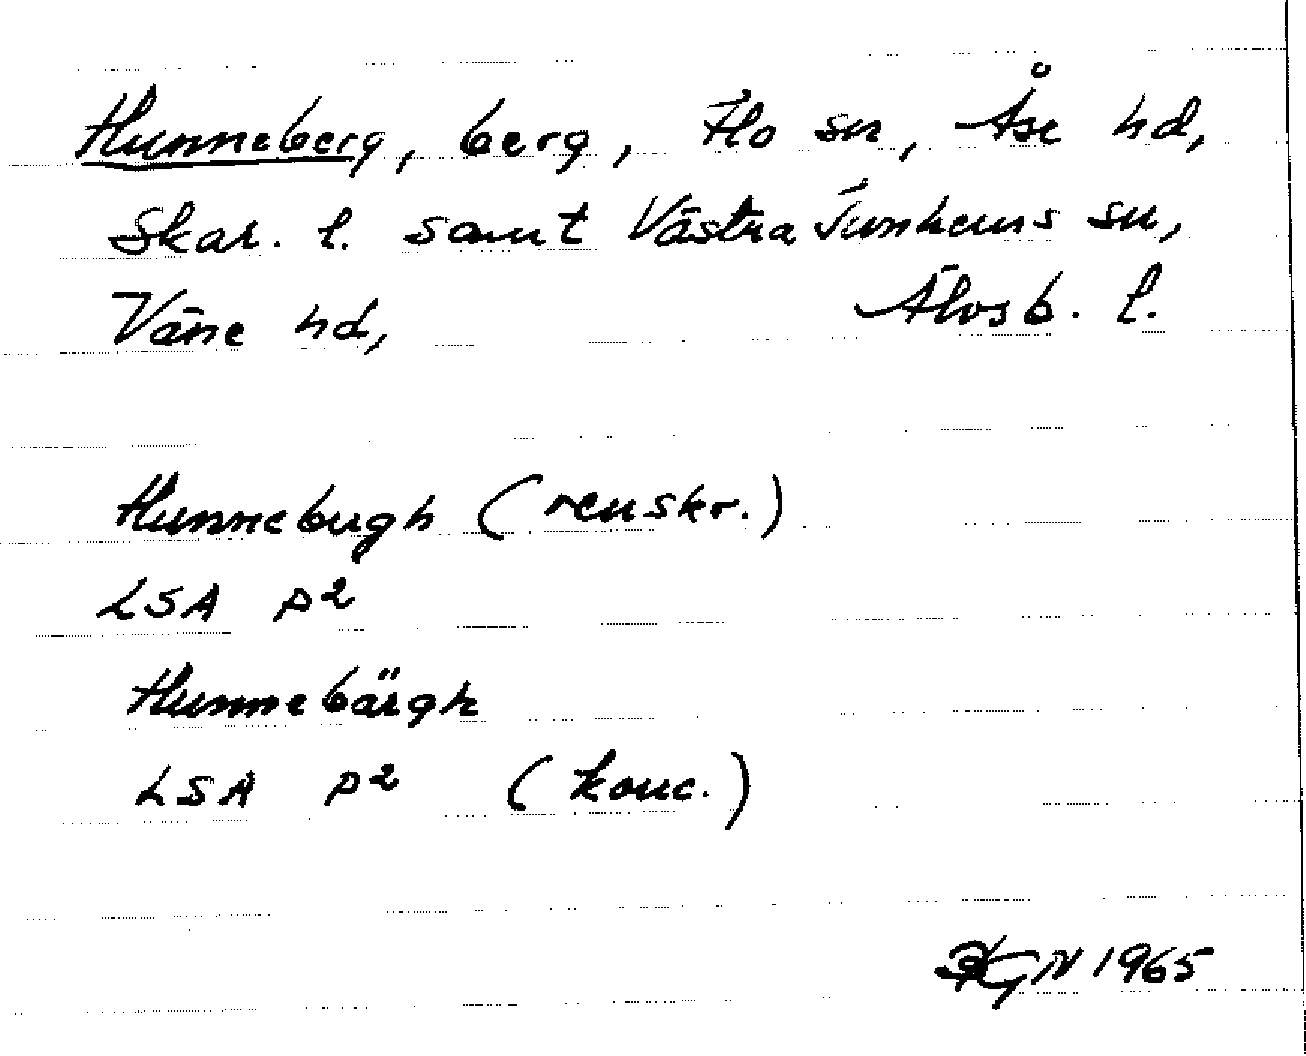 Hunneberg, berg, Flo sn, Åse hd,
Skar. l. samt Västra Tunhems sn,
Väne hd, Älvsb. l.
Hunnebergh (renskr.)
LSA P2
Hunnebärgh
LSA P2 (konc.)
GN 1965